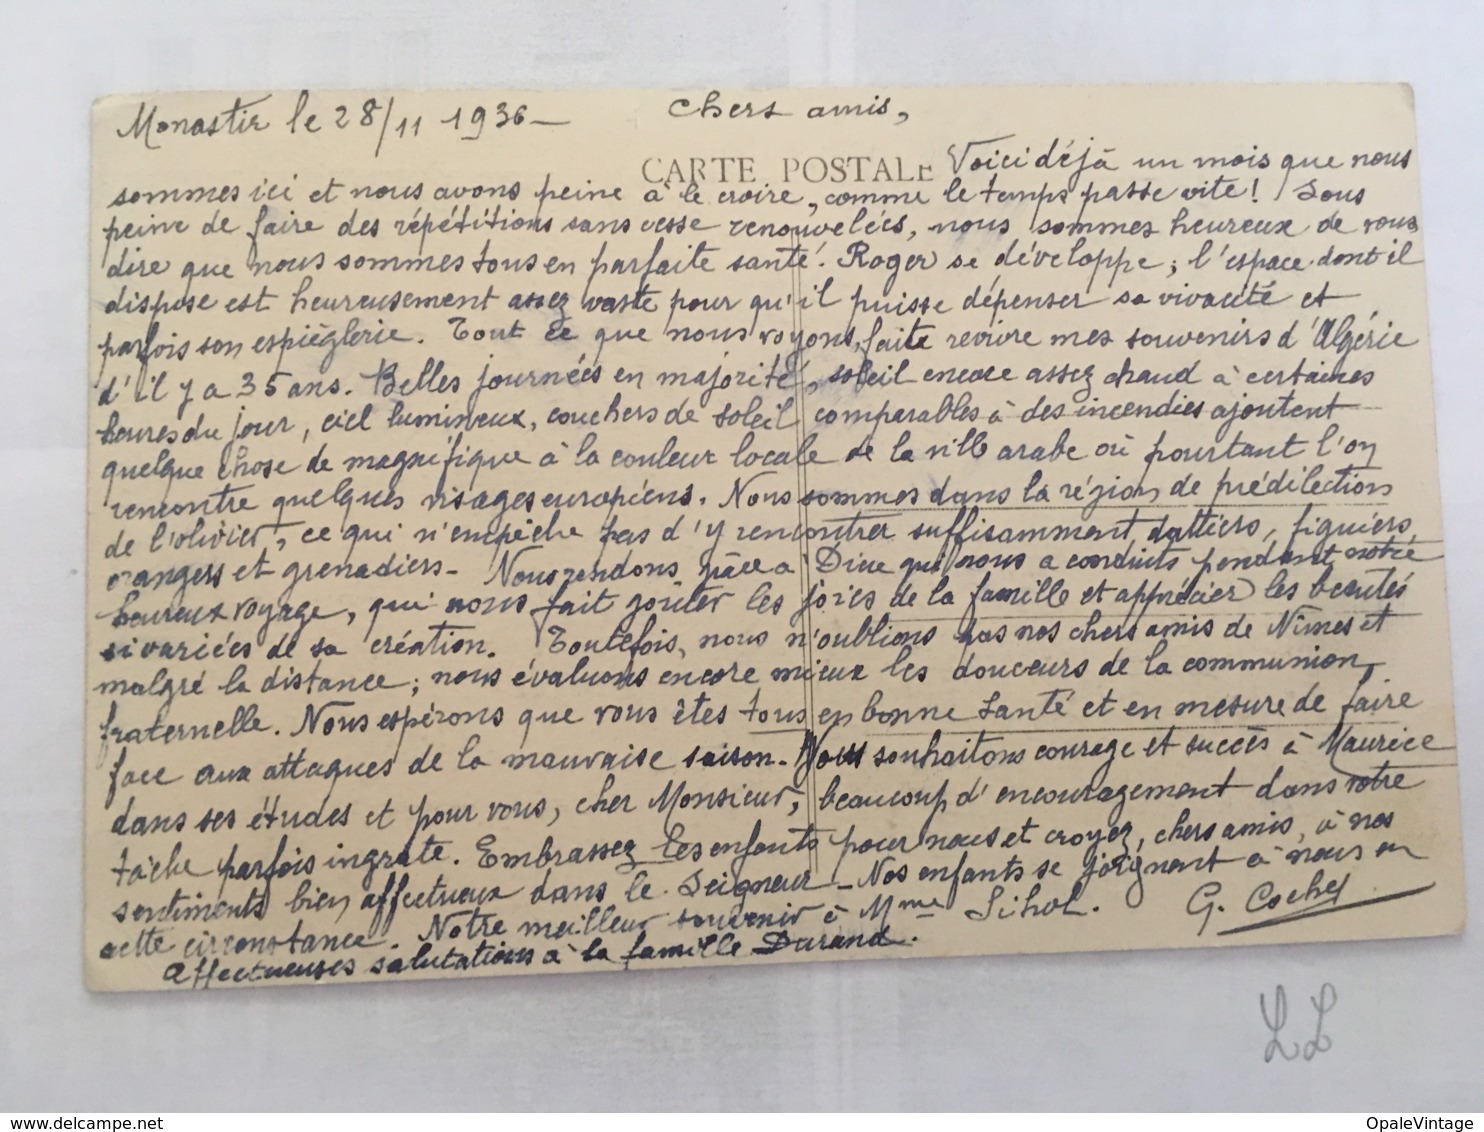 Monastir le 28/11 1936 - Chers amis,
CARTE POSTALE
Voici déjà un mois que nous
sommes ici et nous avons peine à le croire, comme le temps passe vite! Sous
peine de faire des répétitions sans cesse renouvelées, nous sommes heureux de vous
dire que nous sommes tous en parfaite santé. Roger se développe; l'espace dont il
dispose est heureusement assez vaste pour qu'il puisse dépenser sa vivacité et
parfois son espièglerie. Tout ce que nous voyons, faite revivre mes souvenirs d'Algérie
d'il y a 35 ans. Belles journées en majorité, soleil encore assez chaud à certaines
heures du jour, ciel lumineux, couchers de soleil comparables à des incendies ajoutent
quelque chose de magnifique à la couleur locale de la ville arabe où pourtant l'on
rencontre quelques visages européens. Nous sommes dans la région de prédilection
de l'olivier, ce qui n'empêche pas d'y rencontrer suffisamment dattiers, figuiers,
orangers et grenadiers - Nous rendons grâce à Dieu qui nous a conduits pendant notre
heureux voyage, qui nous fait goûter les joies de la famille et apprécier les beautés
si variées de sa création. Toutefois, nous n'oublions pas nos chers amis de Nîmes et
malgré la distance; nous évaluons encore mieux les douceurs de la communion
fraternelle. Nous espérons que vous êtes tous en bonne santé et en mesure de faire
face aux attaques de la mauvaise saison - Nous souhaitons courage et succès à Maurice
dans ses études et pour vous, cher Monsieur, beaucoup d'encouragement dans votre
tâche parfois ingrate. Embrassez les enfants pour nous et croyez, chers amis, à nos
sentiments bien affectueux dans le Seigneur - Nos enfants se joignent à nous en
cette circonstance. Notre meilleur souvenir à Mme G. Cochet
Affectueuses salutations à la famille Durand.
LL
OpaleVintage
delcampe.net